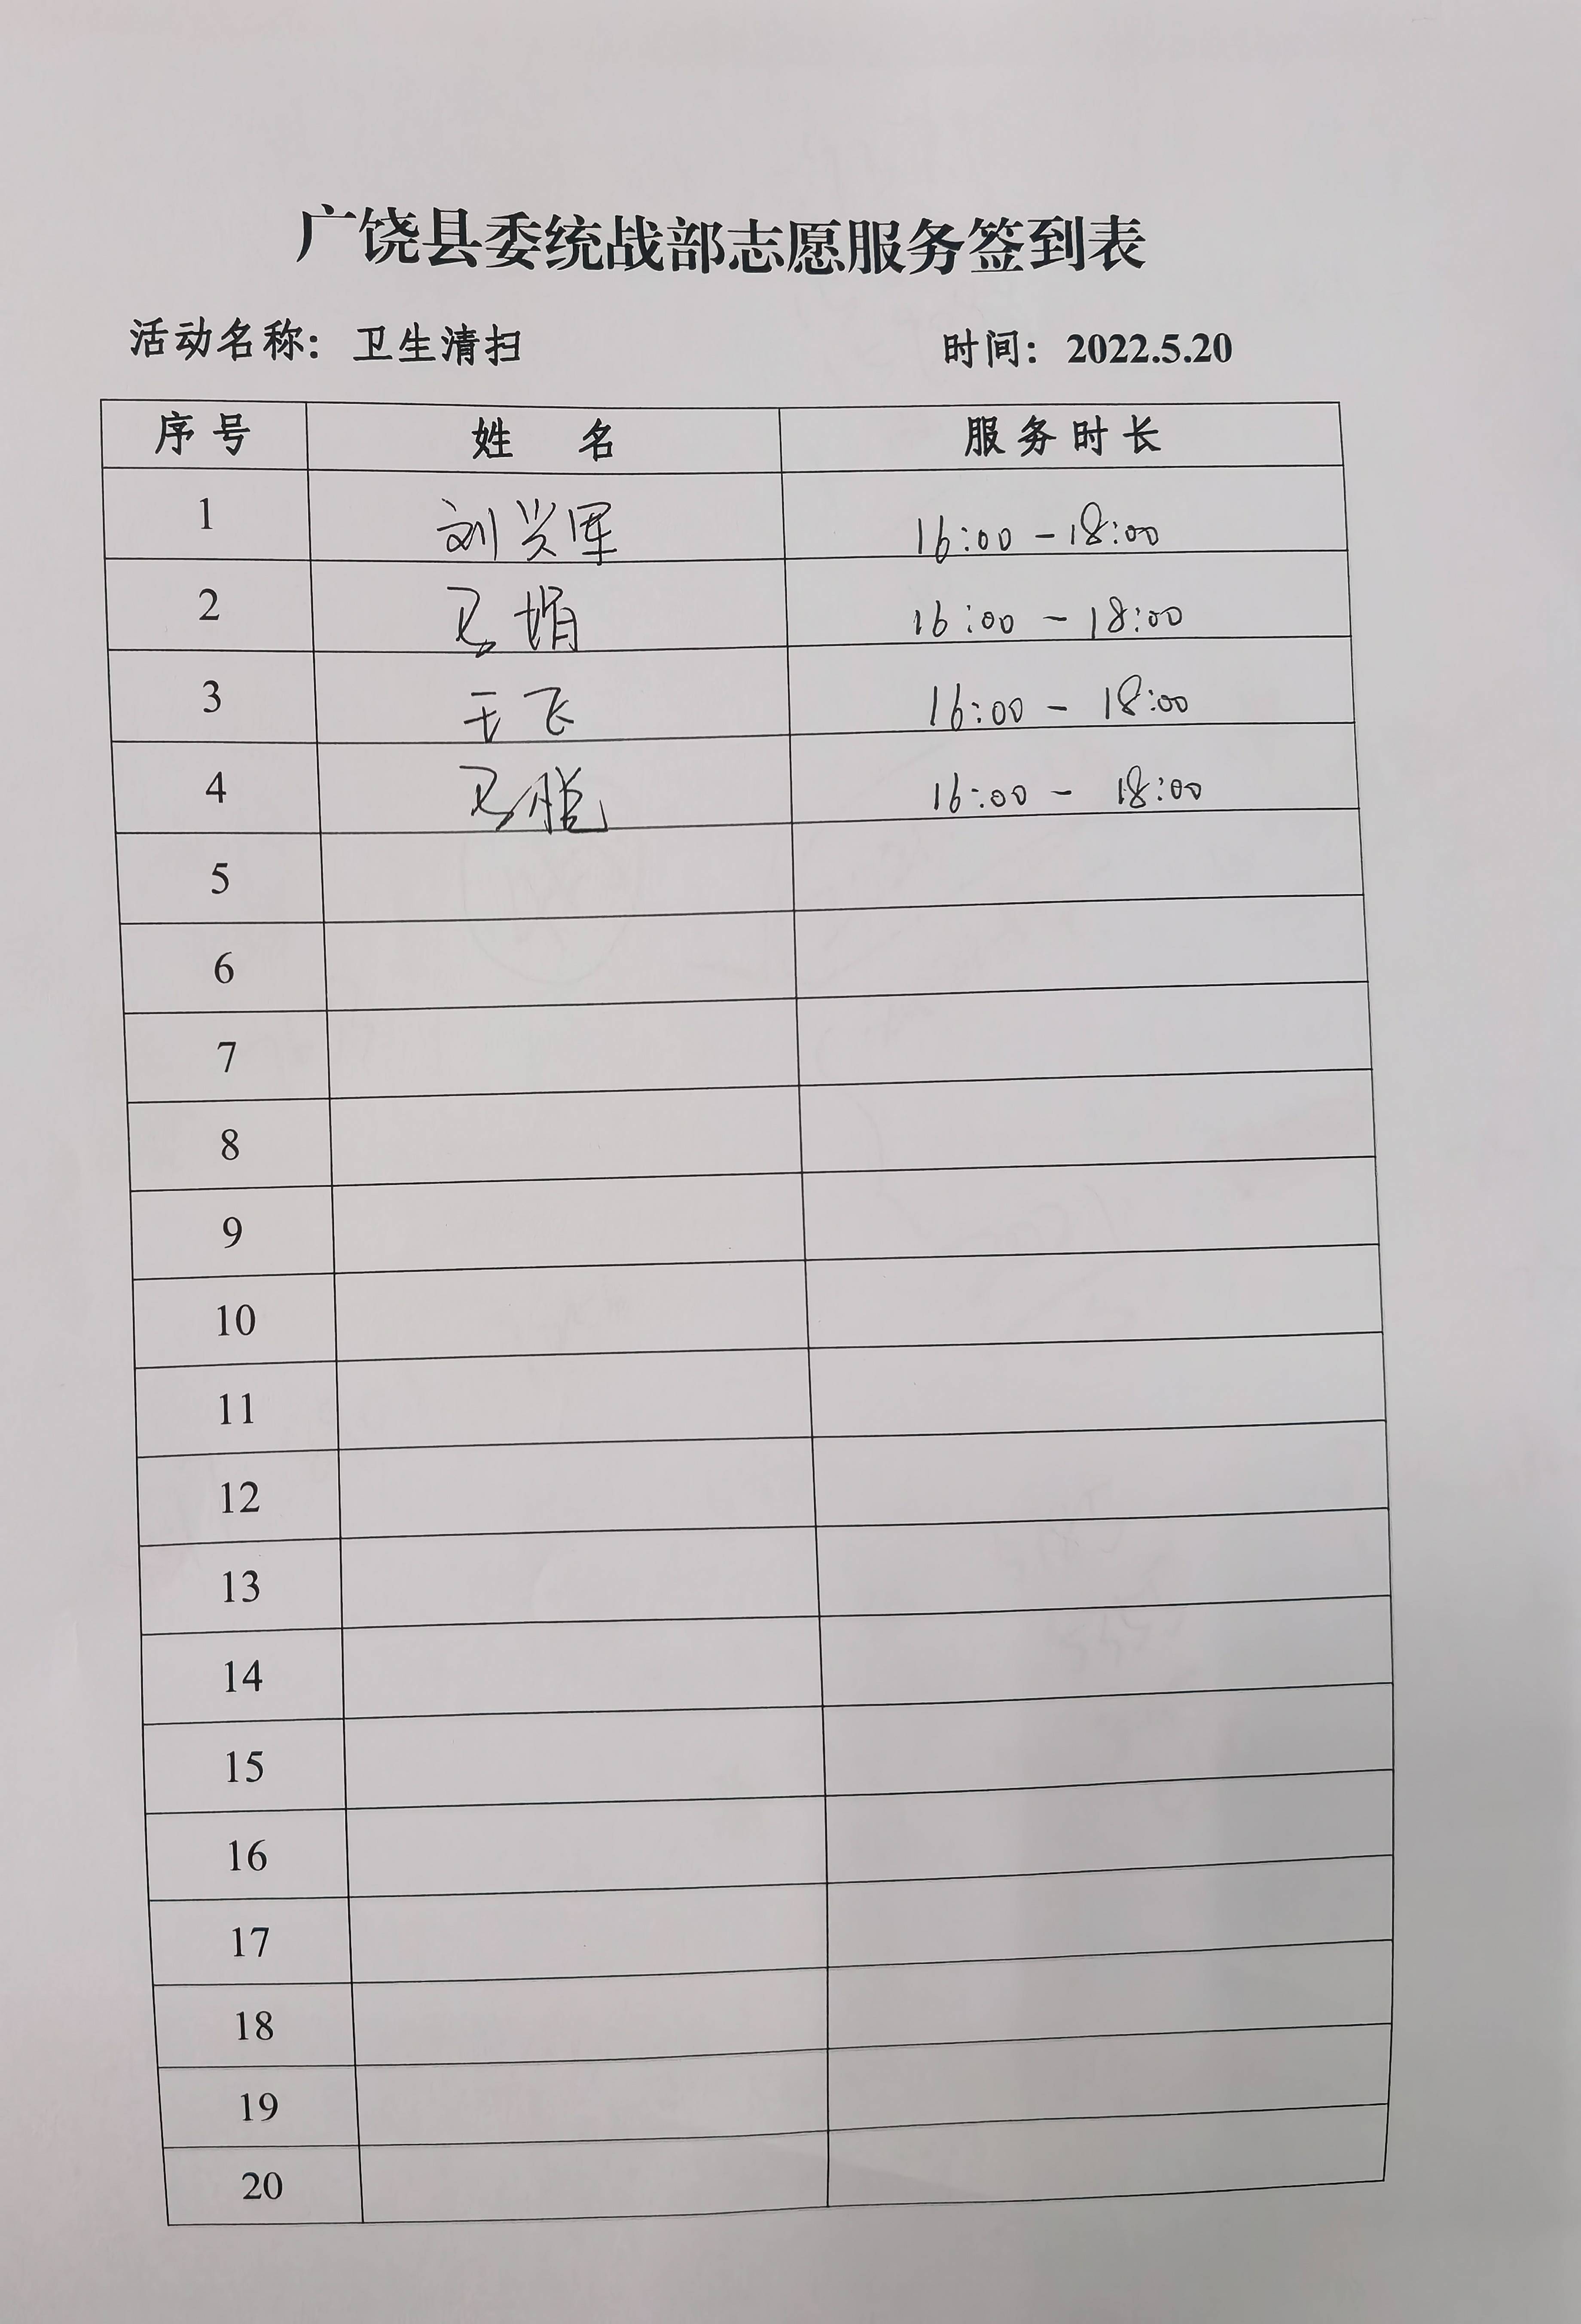 广饶县委统战部志愿服务签到表
活动名称：卫生清扫 时间：2022.5.20
序号 姓 名 服务时长
1 刘兴军 16:00-18:00
2 娟 16:00-18:00
3 于飞 16:00-18:00
4 16:00-18:00
5
6
7
8
9
10
11
12
13
14
15
16
17
18
19
20